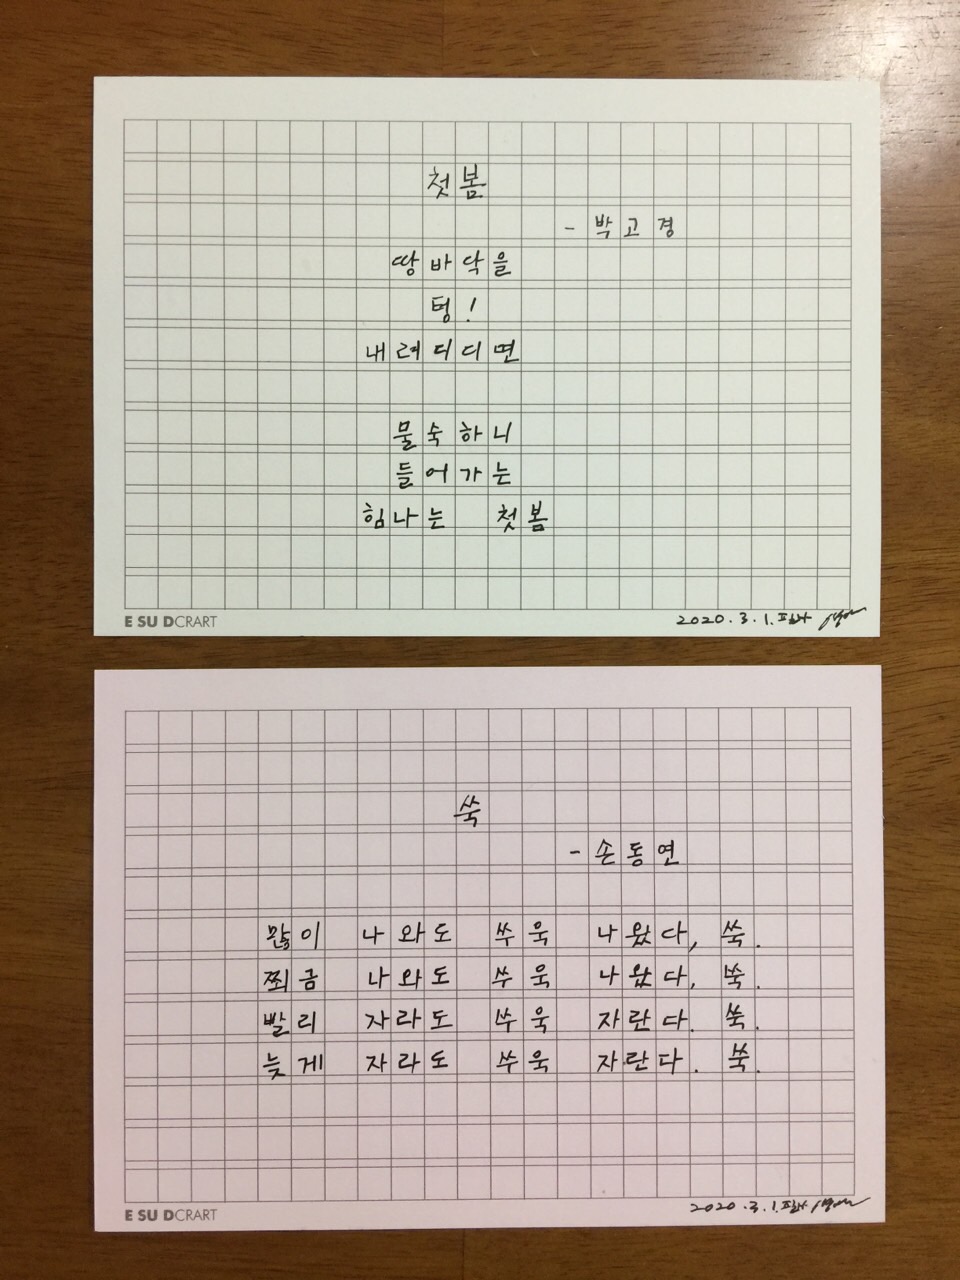 첫봄
- 박고경
땅바닥을
텅!
내려디디면
물숙하니
들어가는
힘나는 첫봄
E SU DCRART
2020.3.1.
쑥
- 손동연
많이 나와도 쑤욱 나왔다, 쑥.
쬐금 나와도 쑤욱 나왔다, 쑥.
빨리 자라도 쑤욱 자란다. 쑥.
늦게 자라도 쑤욱 자란다. 쑥.
E SU DCRART
2020.3.1.